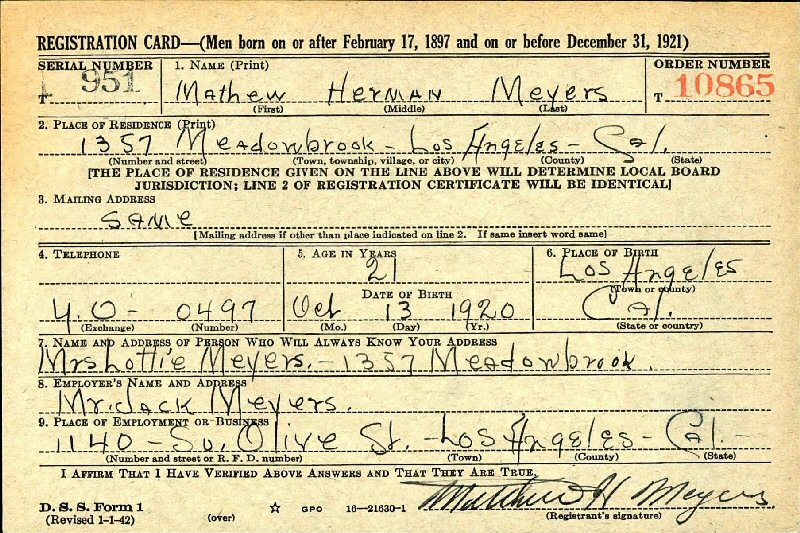 REGISTRATION CARD—(Men born on or after February 17, 1897 and on or before December 31, 1921)
SERIAL NUMBER
1. NAME (Print)
ORDER NUMBER
T 951
Mathew Herman Meyers
T 10865
(First) (Middle) (Last)
2. PLACE OF RESIDENCE (Print)
1357 Meadowbrook - Los Angeles - Cal.
(Number and street) (Town, township, village, or city) (County) (State)
[THE PLACE OF RESIDENCE GIVEN ON THE LINE ABOVE WILL DETERMINE LOCAL BOARD
JURISDICTION; LINE 2 OF REGISTRATION CERTIFICATE WILL BE IDENTICAL]
3. MAILING ADDRESS
Same
[Mailing address if other than place indicated on line 2. If same insert word same]
4. TELEPHONE
5. AGE IN YEARS
6. PLACE OF BIRTH
21
Los Angeles
(Town or county)
DATE OF BIRTH
Y.O - 0497
Oct 13 1920
Cal.
(Exchange) (Number)
(Mo.) (Day) (Yr.)
(State or country)
7. NAME AND ADDRESS OF PERSON WHO WILL ALWAYS KNOW YOUR ADDRESS
Mrs Lottie Meyers. - 1357 Meadowbrook.
8. EMPLOYER'S NAME AND ADDRESS
Mr. Jack Meyers.
9. PLACE OF EMPLOYMENT OR BUSINESS
1140 - So. Olive St. - Los Angeles - Cal.
(Number and street or R. F. D. number) (Town) (County) (State)
I AFFIRM THAT I HAVE VERIFIED ABOVE ANSWERS AND THAT THEY ARE TRUE.
Matthew H Meyers
D. S. S. Form 1
(Revised 1-1-42) (over) ☆ GPO 16—21630-1 (Registrant's signature)